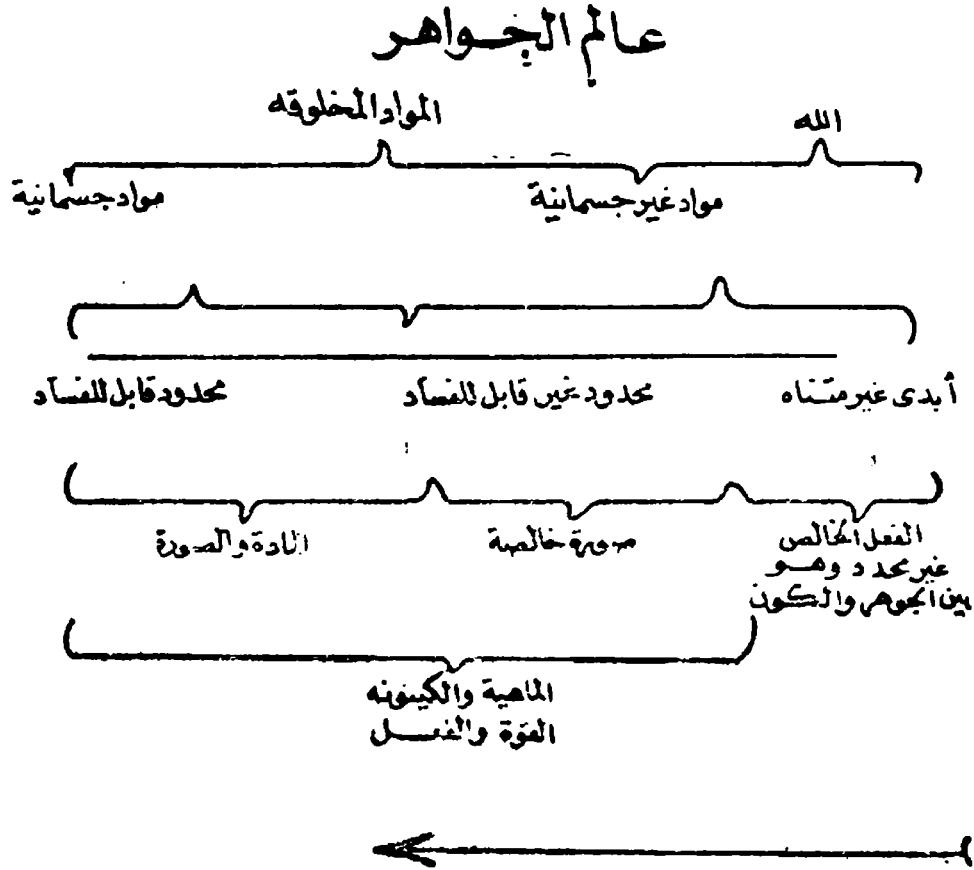 عالم الجواهر
الله
المواد المخلوقه
مواد غير جسمانية
مواد جسمانية
أبدى غير متناه
محدود غير قابل للفساد
محدود قابل للفساد
الفعل الخالص
غير محدد وهو
بين الجوهر والكون
صورة خالصة
المادة والصورة
الماهية والكينونه
القوة والفعل